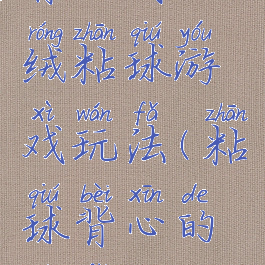 róng zhān qiú yóu
绒粘球游
xì wán fǎ zhān
戏玩法(粘
qiú bèi xīn de
球背心的